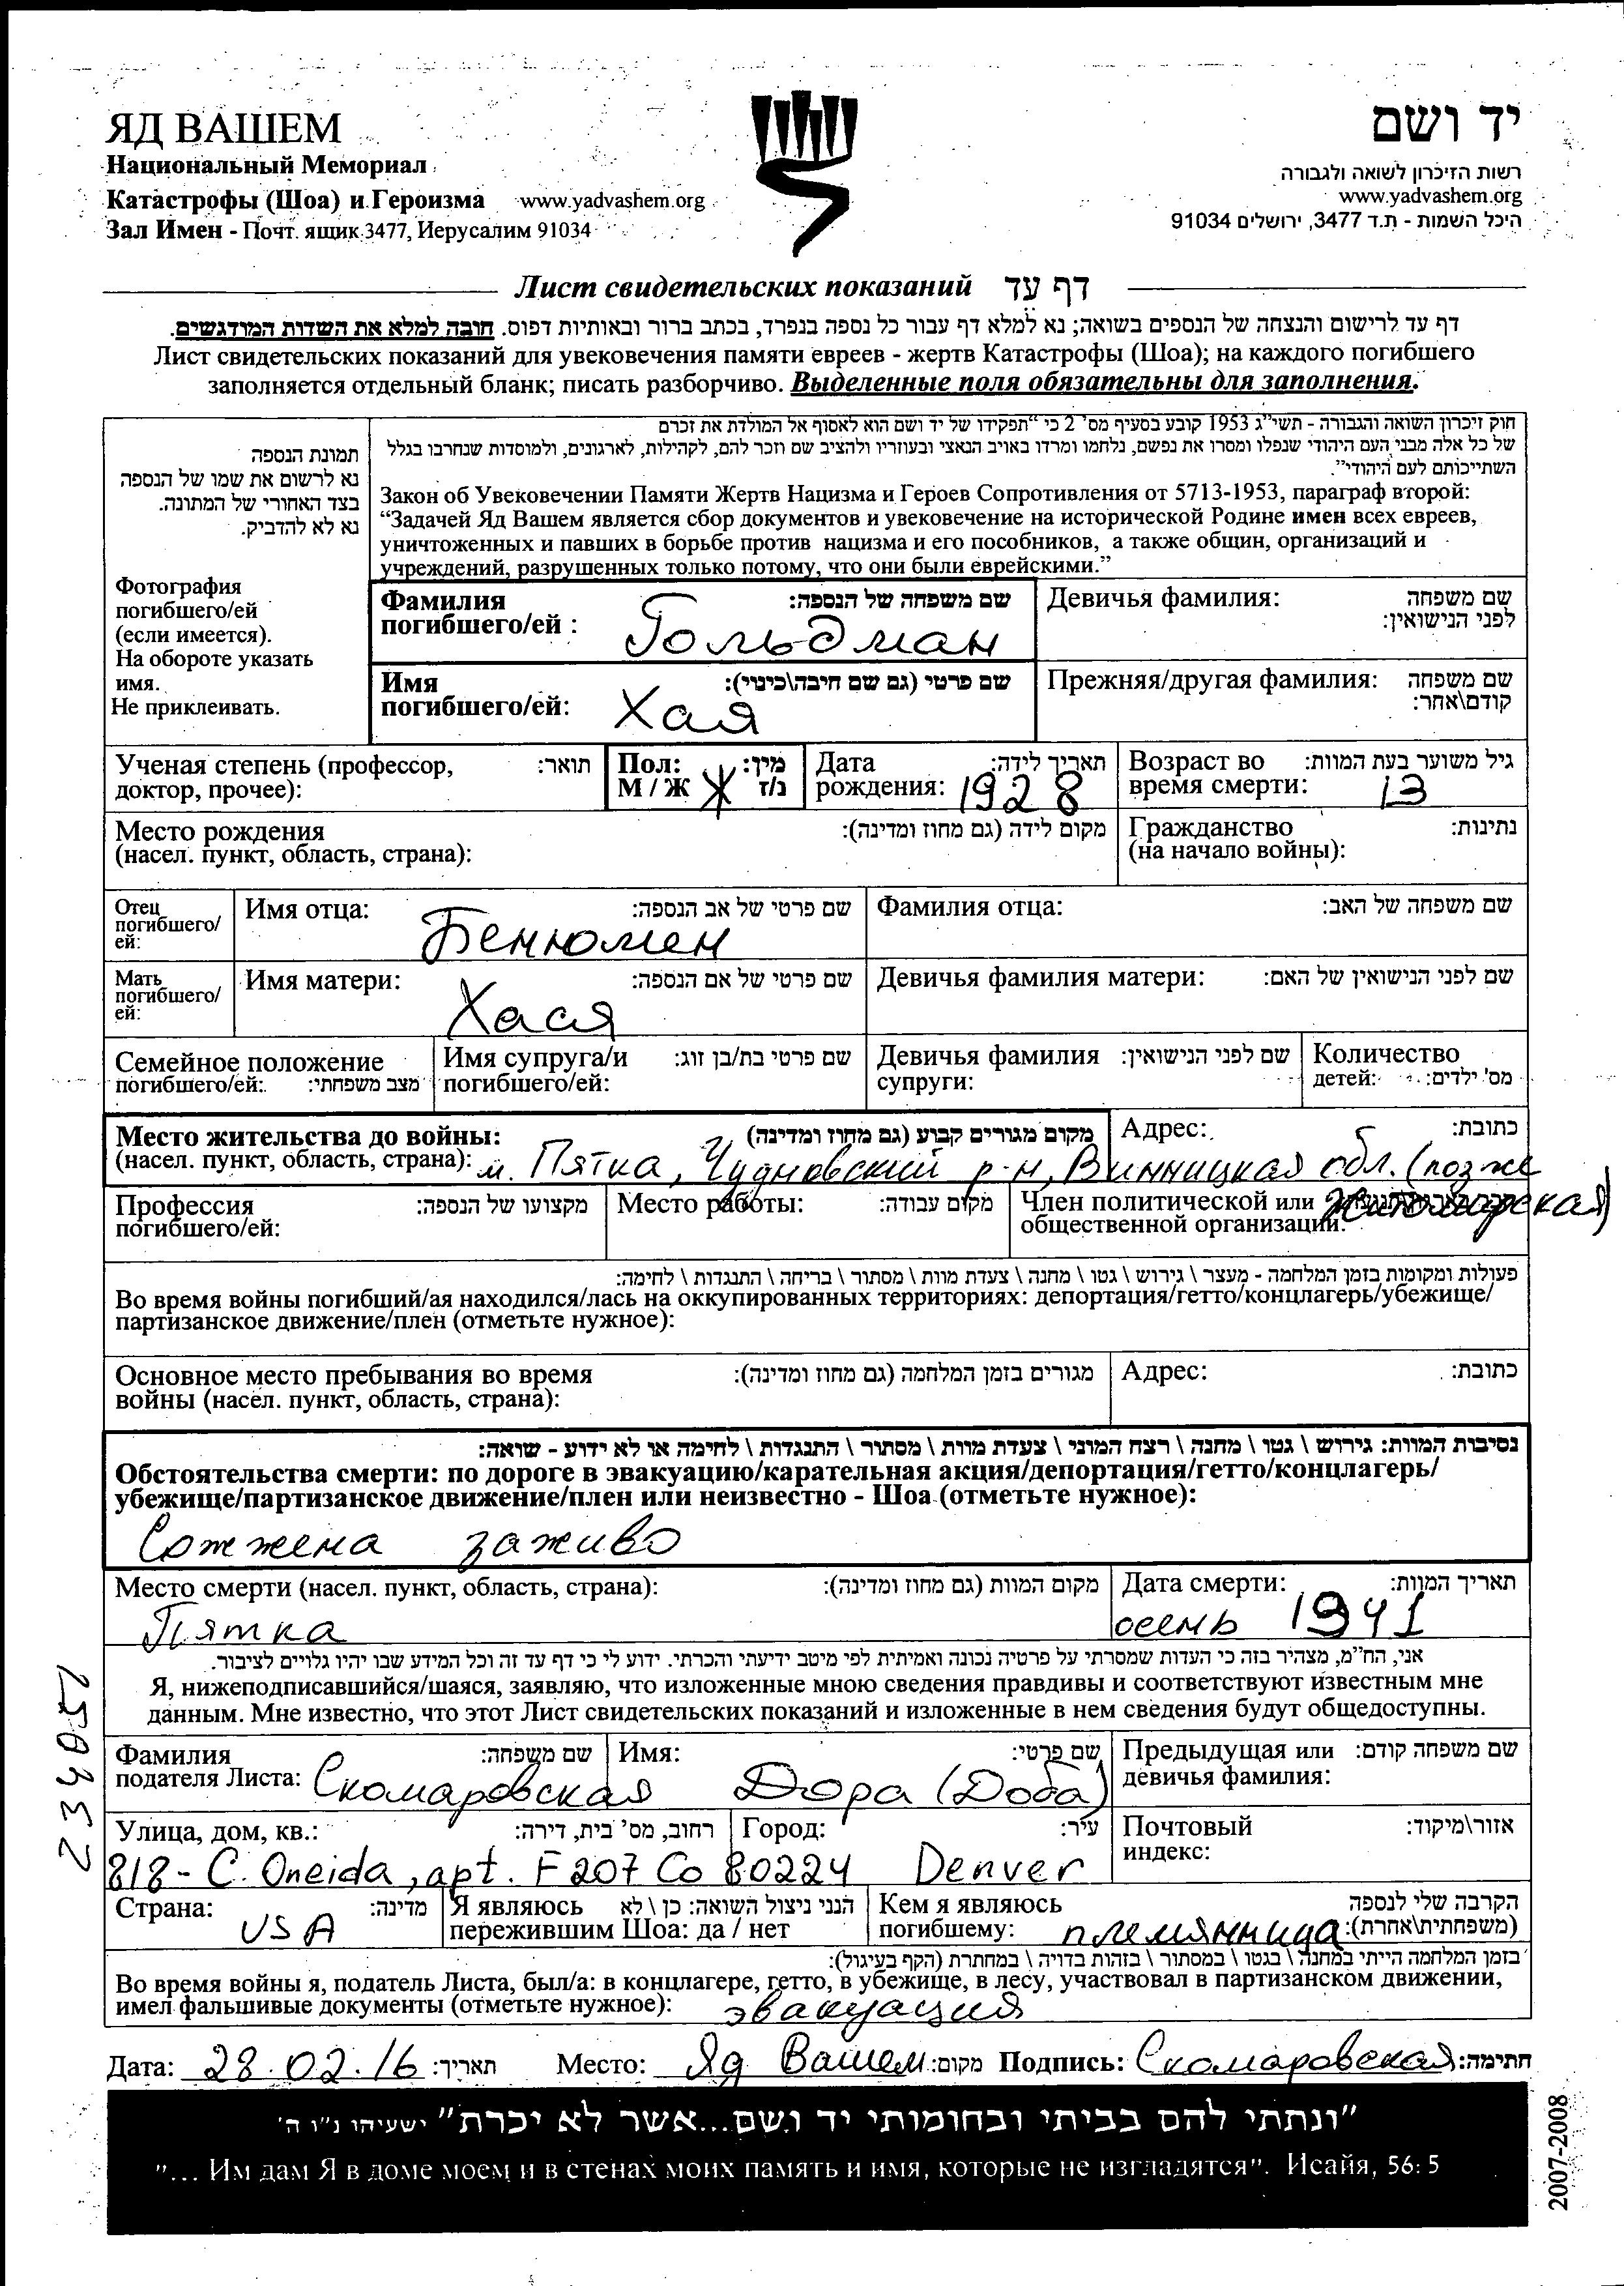 ЯД ВАШЕМ
Национальный Мемориал
Катастрофы (Шоа) и Героизма www.yadvashem.org
Зал Имен - Почт. ящик 3477, Иерусалим 91034
יד ושם
רשות הזיכרון לשואה ולגבורה
www.yadvashem.org
היכל השמות - ת.ד 3477, ירושלים 91034
Лист свидетельских показаний דף עד
דף עד לרישום והנצחה של הנספים בשואה; נא למלא דף עבור כל נספה בנפרד, בכתב ברור ובאותיות דפוס. חובה למלא את השדות המודגשים.
Лист свидетельских показаний для увековечения памяти евреев - жертв Катастрофы (Шоа); на каждого погибшего
заполняется отдельный бланк; писать разборчиво. Выделенные поля обязательны для заполнения.
תמונת הנספה
נא לרשום את שמו של הנספה
בצד האחורי של המתונה.
נא לא להדביק.
Фотография
погибшего/ей
(если имеется).
На обороте указать
имя.
Не приклеивать.
חוק זיכרון השואה והגבורה - תשי"ג 1953 קובע בסעיף מס' 2 כי "תפקידו של יד ושם הוא לאסוף אל המולדת את זכרם
של כל אלה מבני העם היהודי שנפלו ומסרו את נפשם, נלחמו ומרדו באויב הנאצי ובעוזריו ולהציב שם וזכר להם, לקהילות, לארגונים, ולמוסדות שנחרבו בגלל
השתייכותם לעם היהודי".
Закон об Увековечении Памяти Жертв Нацизма и Героев Сопротивления от 5713-1953, параграф второй:
“Задачей Яд Вашем является сбор документов и увековечение на исторической Родине имен всех евреев,
уничтоженных и павших в борьбе против нацизма и его пособников, а также общин, организаций и
учреждений, разрушенных только потому, что они были еврейскими.”
Фамилия שם משפחה של הנספה:
погибшего/ей : Гольдман
Девичья фамилия: שם משפחה
לפני הנישואין:
Имя שם פרטי (גם שם חיבה\כינוי):
погибшего/ей: Хая
Прежняя/другая фамилия: שם משפחה
קודם\אחר:
Ученая степень (профессор, תואר:
доктор, прочее):
Пол: מין:
М / Ж Ж ז/נ
Дата תאריך לידה:
рождения: 1928
Возраст во גיל משוער בעת המוות:
время смерти: 13
Место рождения מקום לידה (גם מחוז ומדינה):
(насел. пункт, область, страна):
Гражданство נתינות:
(на начало войны):
Отец
погибшего/
ей:
Имя отца: שם פרטי של אב הנספה:
Бенюмен
Фамилия отца: שם משפחה של האב:
Мать
погибшего/
ей:
Имя матери: שם פרטי של אם הנספה:
Хася
Девичья фамилия матери: שם לפני הנישואין של האם:
Семейное положение
погибшего/ей: מצב משפחתי:
Имя супруга/и שם פרטי בת/בן זוג:
погибшего/ей:
Девичья фамилия שם לפני הנישואין:
супруги:
Количество
детей: מס' ילדים:
Место жительства до войны: מקום מגורים קבוע (גם מחוז ומדינה)
Адрес: כתובת:
(насел. пункт, область, страна): м. Пятка, Чудновский р-н, Винницкая обл. (позже
Житомирская)
Профессия מקצועו של הנספה:
погибшего/ей:
Место работы: מקום עבודה:
Член политической или
общественной организации:
פעולות ומקומות בזמן המלחמה - מעצר \ גירוש \ גטו \ מחנה \ צעדת מוות \ מסתור \ בריחה \ התנגדות \ לחימה:
Во время войны погибший/ая находился/лась на оккупированных территориях: депортация/гетто/концлагерь/убежище/
партизанское движение/плен (отметьте нужное):
Основное место пребывания во время מגורים בזמן המלחמה (גם מחוז ומדינה):
войны (насел. пункт, область, страна):
Адрес: כתובת:
נסיבות המוות: גירוש \ גטו \ מחנה \ רצח המוני \ צעדת מוות \ מסתור \ התנגדות \ לחימה או לא ידוע - שואה:
Обстоятельства смерти: по дороге в эвакуацию/карательная акция/депортация/гетто/концлагерь/
убежище/партизанское движение/плен или неизвестно - Шоа (отметьте нужное):
Сожжена заживо
Место смерти (насел. пункт, область, страна): מקום המוות (גם מחוז ומדינה):
Пятка
Дата смерти: תאריך המוות:
осень 1941
אני, הח"מ, מצהיר בזה כי העדות שמסרתי על פרטיה נכונה ואמיתית לפי מיטב ידיעתי והכרתי. ידוע לי כי דף עד זה וכל המידע שבו יהיו גלויים לציבור.
Я, нижеподписавшийся/шаяся, заявляю, что изложенные мною сведения правдивы и соответствуют известным мне
данным. Мне известно, что этот Лист свидетельских показаний и изложенные в нем сведения будут общедоступны.
Фамилия שם משפחה:
подателя Листа: Скомаровская
Имя: שם פרטי:
Дора (Доба)
Предыдущая или שם משפחה קודם:
девичья фамилия:
Улица, дом, кв.: רחוב, מס' בית, דירה:
Город: עיר:
Почтовый אזור\מיקוד:
индекс:
818 - C. Oneida, apt. F 207 Co 80224 Denver
Страна: מדינה:
USA
Я являюсь הנני ניצול השואה: כן \ לא
пережившим Шоа: да / нет
Кем я являюсь הקרבה שלי לנספה
погибшему: племянница (משפחתית\אחרת):
בזמן המלחמה הייתי במחנה \ בגטו \ במסתור \ בזהות בדויה \ במחתרת (הקף בעיגול):
Во время войны я, податель Листа, был/а: в концлагере, гетто, в убежище, в лесу, участвовал в партизанском движении,
имел фальшивые документы (отметьте нужное): эвакуация
Дата: 28.02.16 תאריך: Место: Яд Вашем מקום: Подпись: Скомаровская חתימה:
"ונתתי להם בביתי ובחומותי יד ושם...אשר לא יכרת" ישעיהו נ"ו ה'
"... Им дам Я в доме моем и в стенах моих память и имя, которые не изгладятся". Исайя, 56: 5
2007-2008